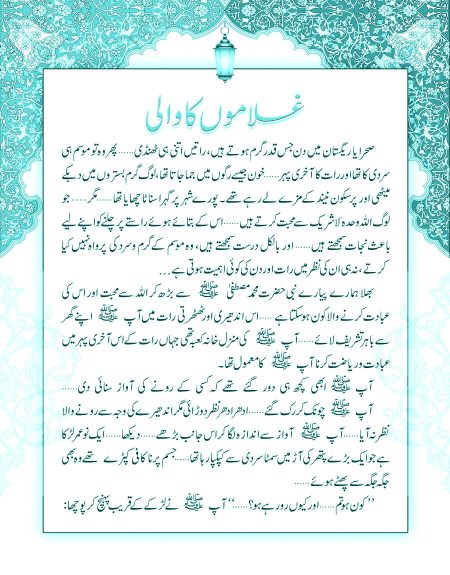 غلاموں کا والی
صحرا یا ریگستان میں دن جس قدر گرم ہوتے ہیں، راتیں اتنی ہی ٹھنڈی......پھر وہ تو موسم ہی
سردی کا تھا اور رات کا آخری پہر......خون جیسے رگوں میں جما جاتا تھا، لوگ گرم بستروں میں دبکے
میٹھی اور پرسکون نیند کے مزے لے رہے تھے۔ پورے شہر پر گہرا سناٹا چھایا تھا......مگر......جو
لوگ اللہ وحدہ لاشریک سے محبت کرتے ہیں......اس کے بتائے ہوئے راستے پر چلنے کو اپنے لیے
باعث نجات سمجھتے ہیں......اور بالکل درست سمجھتے ہیں، وہ موسم کے گرم و سرد کی پرواہ نہیں کیا
کرتے، نہ ہی ان کی نظر میں رات اور دن کی کوئی اہمیت ہوتی ہے...
بھلا ہمارے پیارے نبی حضرت محمد مصطفیٰ ﷺ سے بڑھ کر اللہ سے محبت اور اس کی
عبادت کرنے والا کون ہوسکتا ہے......اس اندھیری اور ٹھٹھرتی رات میں آپ ﷺ اپنے گھر
سے باہر تشریف لائے......آپ ﷺ کی منزل خانہ کعبہ تھی جہاں رات کے اس آخری پہر میں
عبادت و ریاضت کرنا آپ ﷺ کا معمول تھا۔
آپ ﷺ ابھی کچھ ہی دور گئے تھے کہ کسی کے رونے کی آواز سنائی دی......
آپ ﷺ چونک کر رک گئے......ادھر ادھر نظر دوڑائی مگر اندھیرے کی وجہ سے رونے والا
نظر نہ آیا......آپ ﷺ آواز سے اندازہ لگا کر اس جانب بڑھے......دیکھا......ایک نوعمر لڑکا
ہے جو ایک بڑے پتھر کی آڑ میں سمٹا سردی سے کپکپا رہا تھا......جسم پر ناکافی کپڑے تھے وہ بھی
جگہ جگہ سے پھٹے ہوئے......
’’کون ہو تم......اور کیوں رو رہے ہو؟......‘‘ آپ ﷺ نے لڑکے کے قریب پہنچ کر پوچھا: